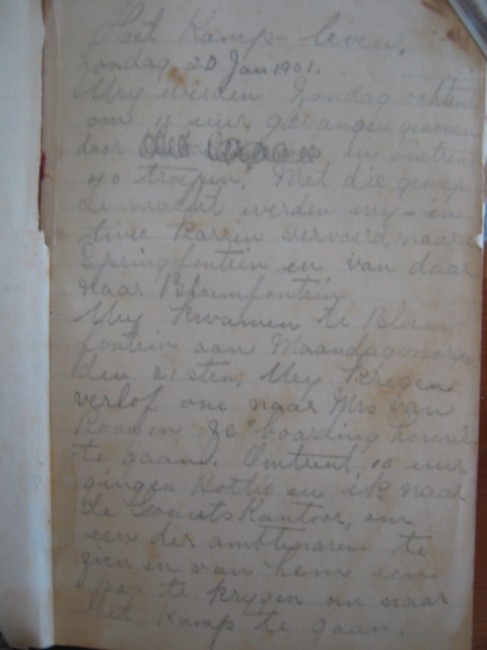 Het Kamp-leven.
Zondag 20 Jan 1901.
Wy werden Zondag ochtend
om 4 uur gevangen genomen
door en omtrent
40 troepen. Met die gewape
de macht werden wy - in
twee Karren vervoerd naar
Springfontein en van daar
naar Bloemfontein.
Wy kwamen te Bloem-
fontein aan Maandagmorgen
den 21 sten. Wy kregen
verlof om naar Mrs van
boarding house
te gaan. Omtrent 10 uur
gingen Hottie en ik naar
de Kantoor, om
een der ambtenaren te
zien en van hem een
pas te krygen om naar
het Kamp te gaan.